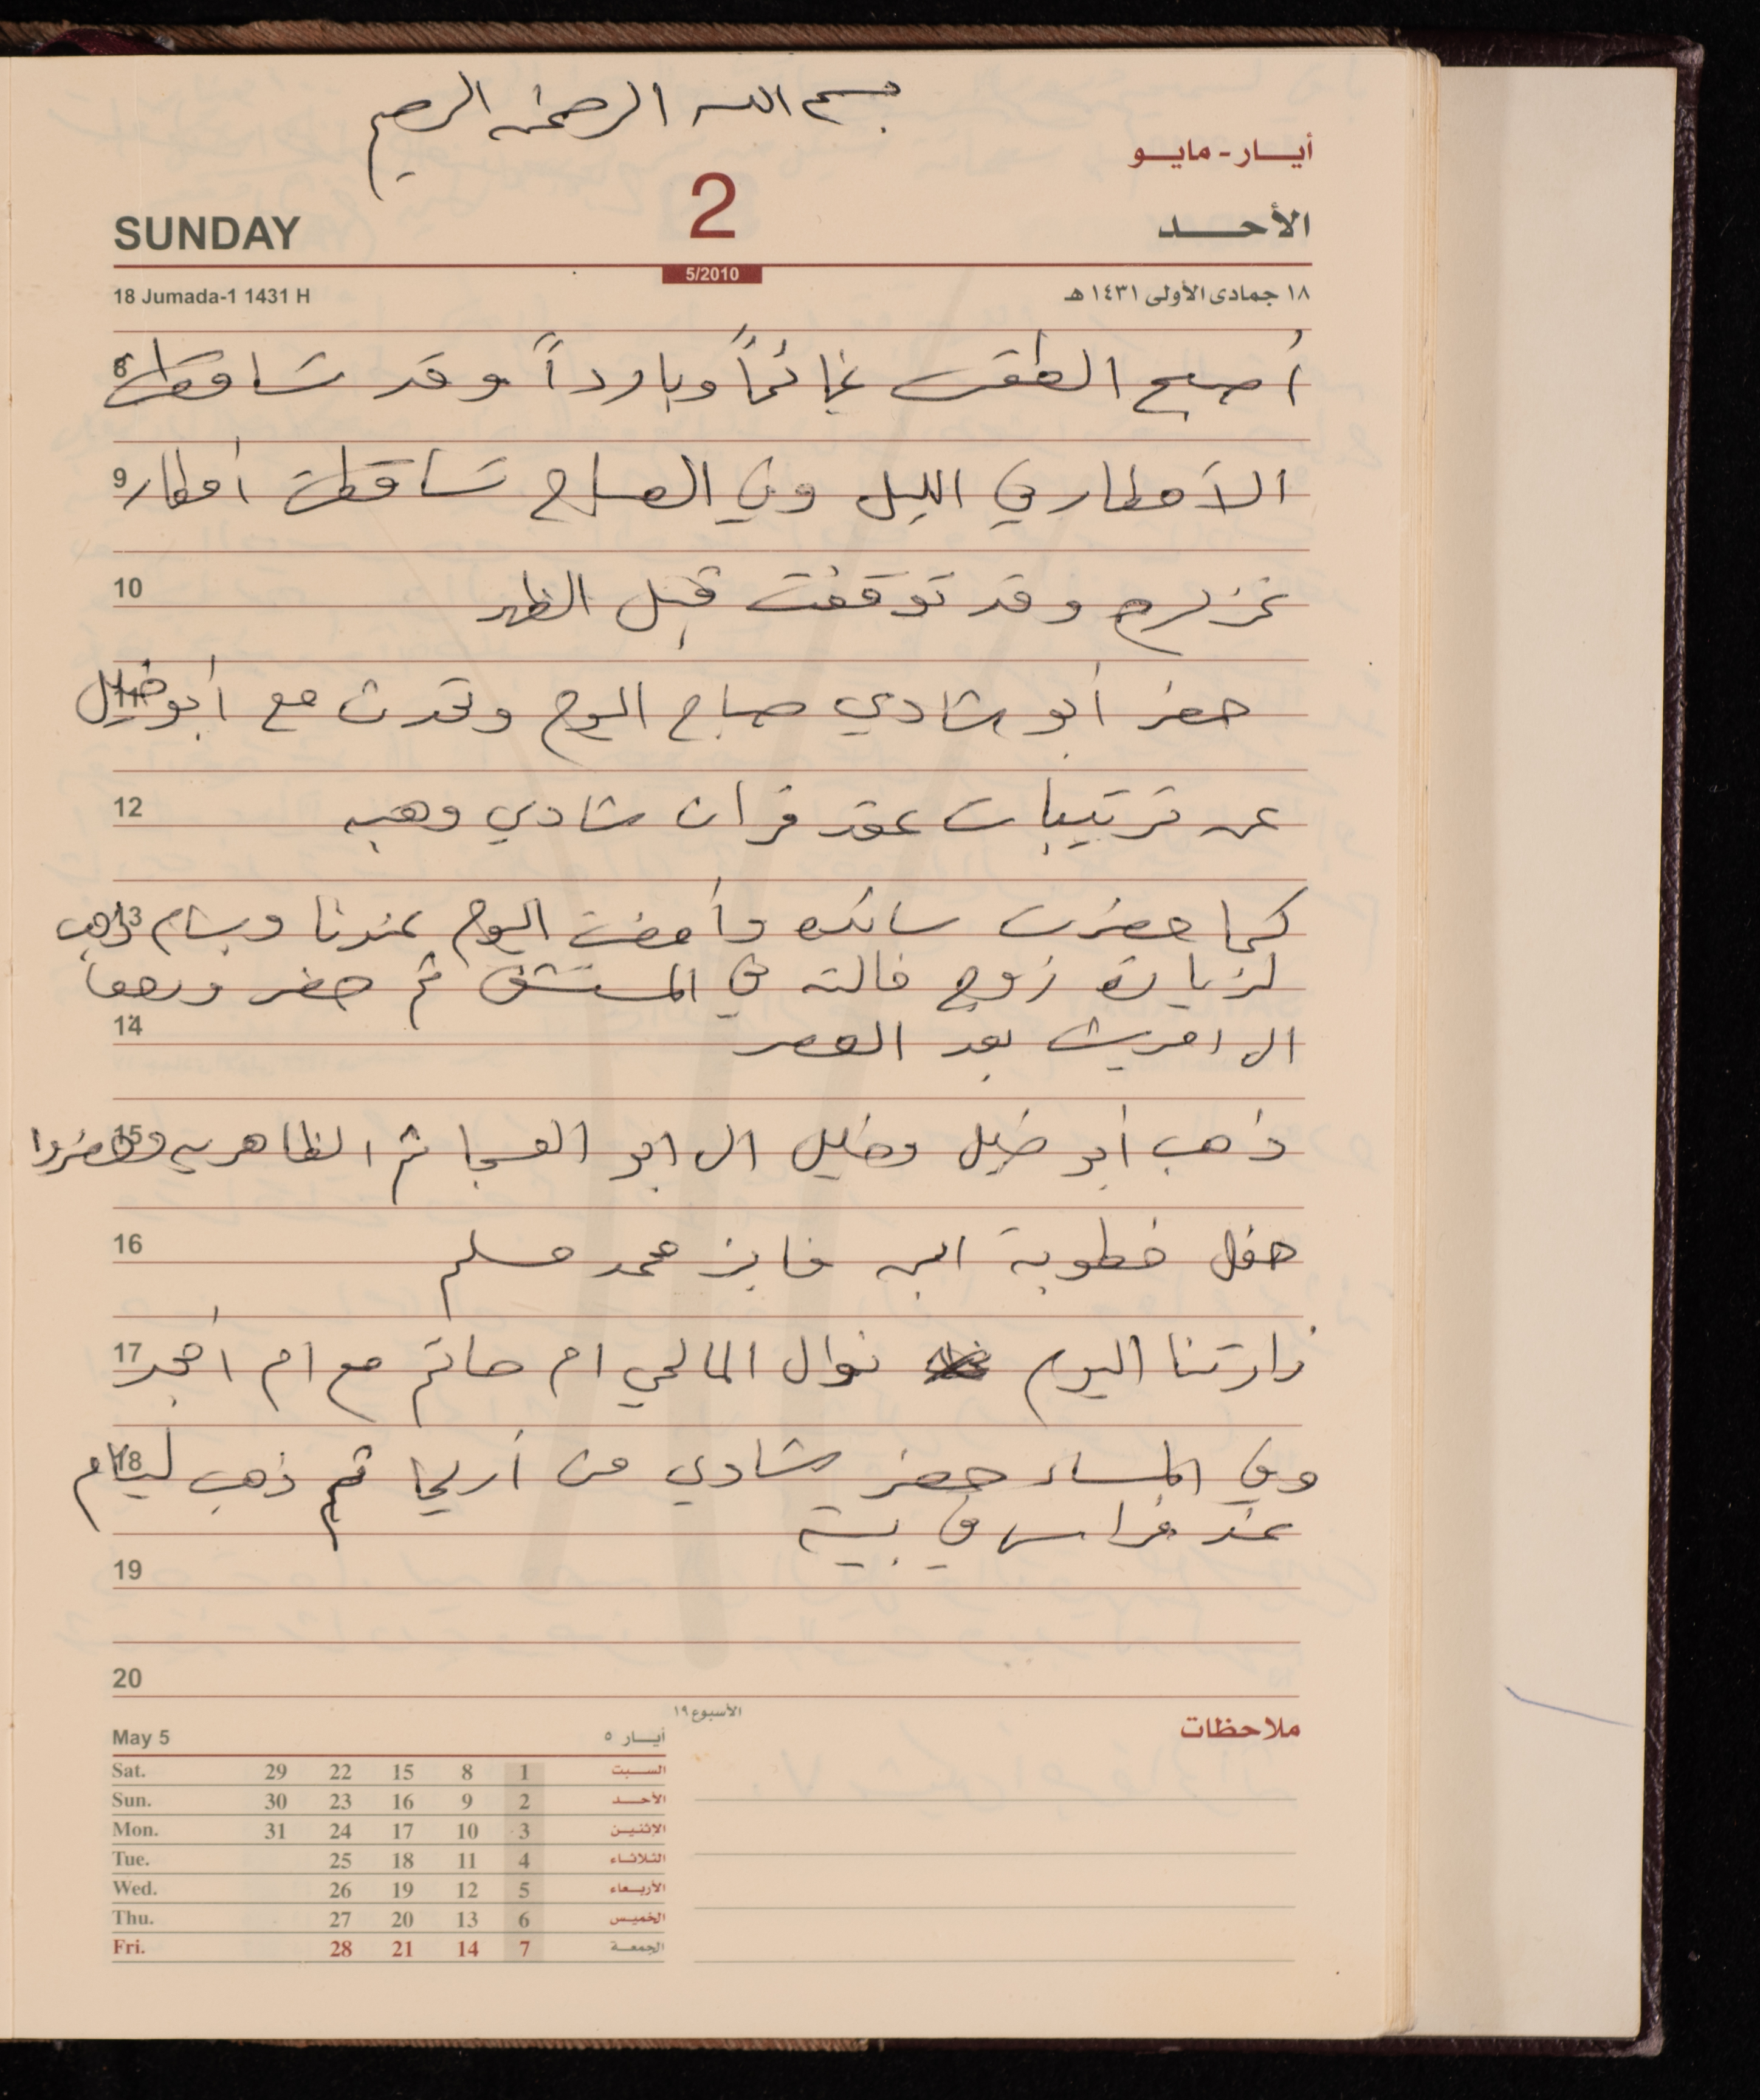 بسم الله الرحمن الرحيم
أيار - مايو
SUNDAY 2 الأحد
5/2010
18 Jumada-1 1431 H ١٨ جمادى الأولى ١٤٣١ هـ
8 أصبح الطقس غائماً وبارداً وقد تساقطت
9 الأمطار في الليل وفي الصباح تساقطت أمطار
10 غزيره وقد توقفت قبل الظهر
11 حضر أبو شادي صباح اليوم وتحدث مع أبو خليل
12 عن ترتيبات عقد قران شادي وهبه
13 كما حضرت سائده وأمضت اليوم عندنا وبسام ذهب
لزيارة زوج خالته في المستشفى ثم حضر ورجعا
14 الى امريش بعد العصر
15 ذهب أبو خليل وخليل الى ابو العسجا ثم الظاهريه وحضروا
16 حفل خطوبة ابن فايز محمد مسلم
17 زارتنا اليوم نوال المالحي ام حاتم مع ام امجد
18 وفي المساء حضر شادي من أريحا ثم ذهب لينام
عند فراس في بيته
19
20
الأسبوع ١٩
ملاحظات
May 5 أيار ٥
Sat. 29 22 15 8 1 السبت
Sun. 30 23 16 9 2 الأحد
Mon. 31 24 17 10 3 الإثنين
Tue. 25 18 11 4 الثلاثاء
Wed. 26 19 12 5 الأربعاء
Thu. 27 20 13 6 الخميس
Fri. 28 21 14 7 الجمعة